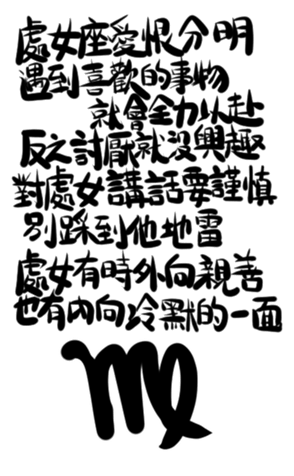 處女座愛恨分明
遇到喜歡的事物
就會全力以赴
反之討厭就沒興趣
對處女講話要謹慎
別踩到他地雷
處女有時外向親善
也有內向冷默的一面